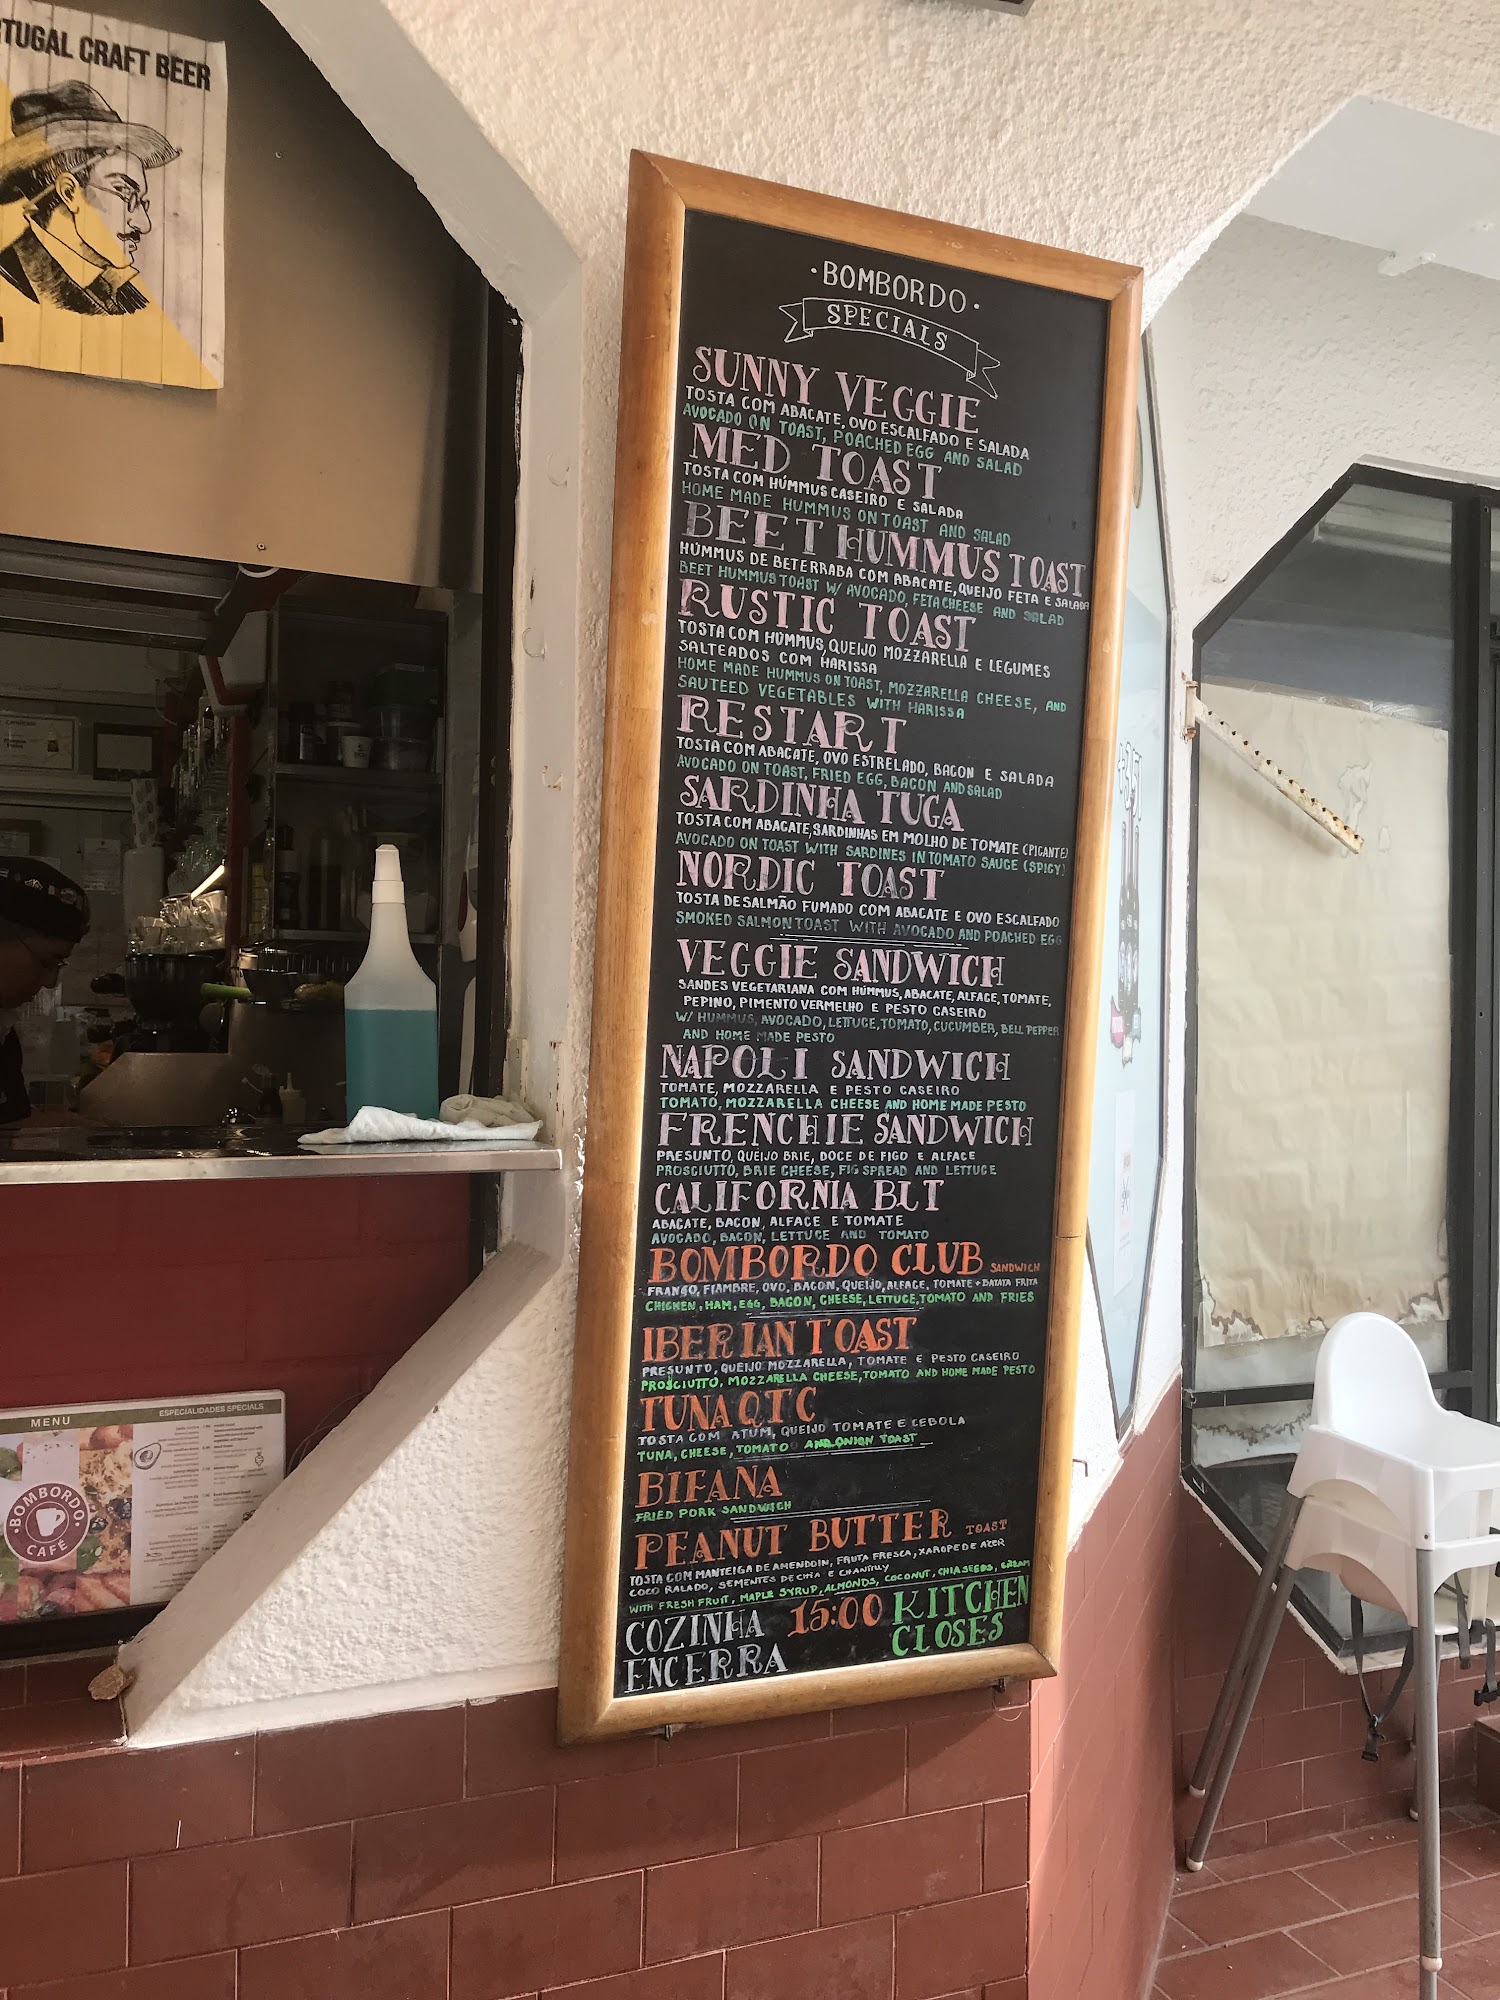 RTUGAL CRAFT BEER
·BOMBORDO·
SPECIALS
SUNNY VEGGIE
TOSTA COM ABACATE, OVO ESCALFADO E SALADA
AVOCADO ON TOAST, POACHED EGG AND SALAD
MED TOAST
TOSTA COM HÚMMUS CASEIRO E SALADA
HOME MADE HUMMUS ON TOAST AND SALAD
BEET HUMMUS TOAST
HÚMMUS DE BETERRABA COM ABACATE, QUEIJO FETA E SALADA
BEET HUMMUS TOAST W/ AVOCADO, FETA CHEESE AND SALAD
RUSTIC TOAST
TOSTA COM HÚMMUS, QUEIJO MOZZARELLA E LEGUMES
SALTEADOS COM HARISSA
HOME MADE HUMMUS ON TOAST, MOZZARELLA CHEESE, AND
SAUTEED VEGETABLES WITH HARISSA
RESTART
TOSTA COM ABACATE, OVO ESTRELADO, BACON E SALADA
AVOCADO ON TOAST, FRIED EGG, BACON AND SALAD
SARDINHA TUGA
TOSTA COM ABACATE, SARDINHAS EM MOLHO DE TOMATE (PICANTE)
AVOCADO ON TOAST WITH SARDINES IN TOMATO SAUCE (SPICY)
NORDIC TOAST
TOSTA DE SALMÃO FUMADO COM ABACATE E OVO ESCALFADO
SMOKED SALMON TOAST WITH AVOCADO AND POACHED EGG
VEGGIE SANDWICH
SANDES VEGETARIANA COM HÚMMUS, ABACATE, ALFACE, TOMATE,
PEPINO, PIMENTO VERMELHO E PESTO CASEIRO
W/ HUMMUS, AVOCADO, LETTUCE, TOMATO, CUCUMBER, BELL PEPPER
AND HOME MADE PESTO
NAPOLI SANDWICH
TOMATE, MOZZARELLA E PESTO CASEIRO
TOMATO, MOZZARELLA CHEESE AND HOME MADE PESTO
FRENCHIE SANDWICH
PRESUNTO, QUEIJO BRIE, DOCE DE FIGO E ALFACE
PROSCIUTTO, BRIE CHEESE, FIG SPREAD AND LETTUCE
CALIFORNIA BLT
ABACATE, BACON, ALFACE E TOMATE
AVOCADO, BACON, LETTUCE AND TOMATO
BOMBORDO CLUB SANDWICH
FRANGO, FIAMBRE, OVO, BACON, QUEIJO, ALFACE, TOMATE + BATATA FRITA
CHICKEN, HAM, EGG, BACON, CHEESE, LETTUCE, TOMATO AND FRIES
IBERIAN TOAST
PRESUNTO, QUEIJO MOZZARELLA, TOMATE E PESTO CASEIRO
PROSCIUTTO, MOZZARELLA CHEESE, TOMATO AND HOME MADE PESTO
TUNA QTC
TOSTA COM ATUM, QUEIJO TOMATE E CEBOLA
TUNA, CHEESE, TOMATO AND ONION TOAST
BIFANA
FRIED PORK SANDWICH
PEANUT BUTTER TOAST
TOSTA COM MANTEIGA DE AMENDOIN, FRUTA FRESCA, XAROPE DE ACER
COCO RALADO, SEMENTES DE CHIA E CHANTILLY
WITH FRESH FRUIT, MAPLE SYRUP, ALMONDS, COCONUT, CHIA SEEDS, CREAM
COZINHA ENCERRA 15:00 KITCHEN CLOSES
MENU
ESPECIALIDADES SPECIALS
·BOMBORDO·
CAFÉ